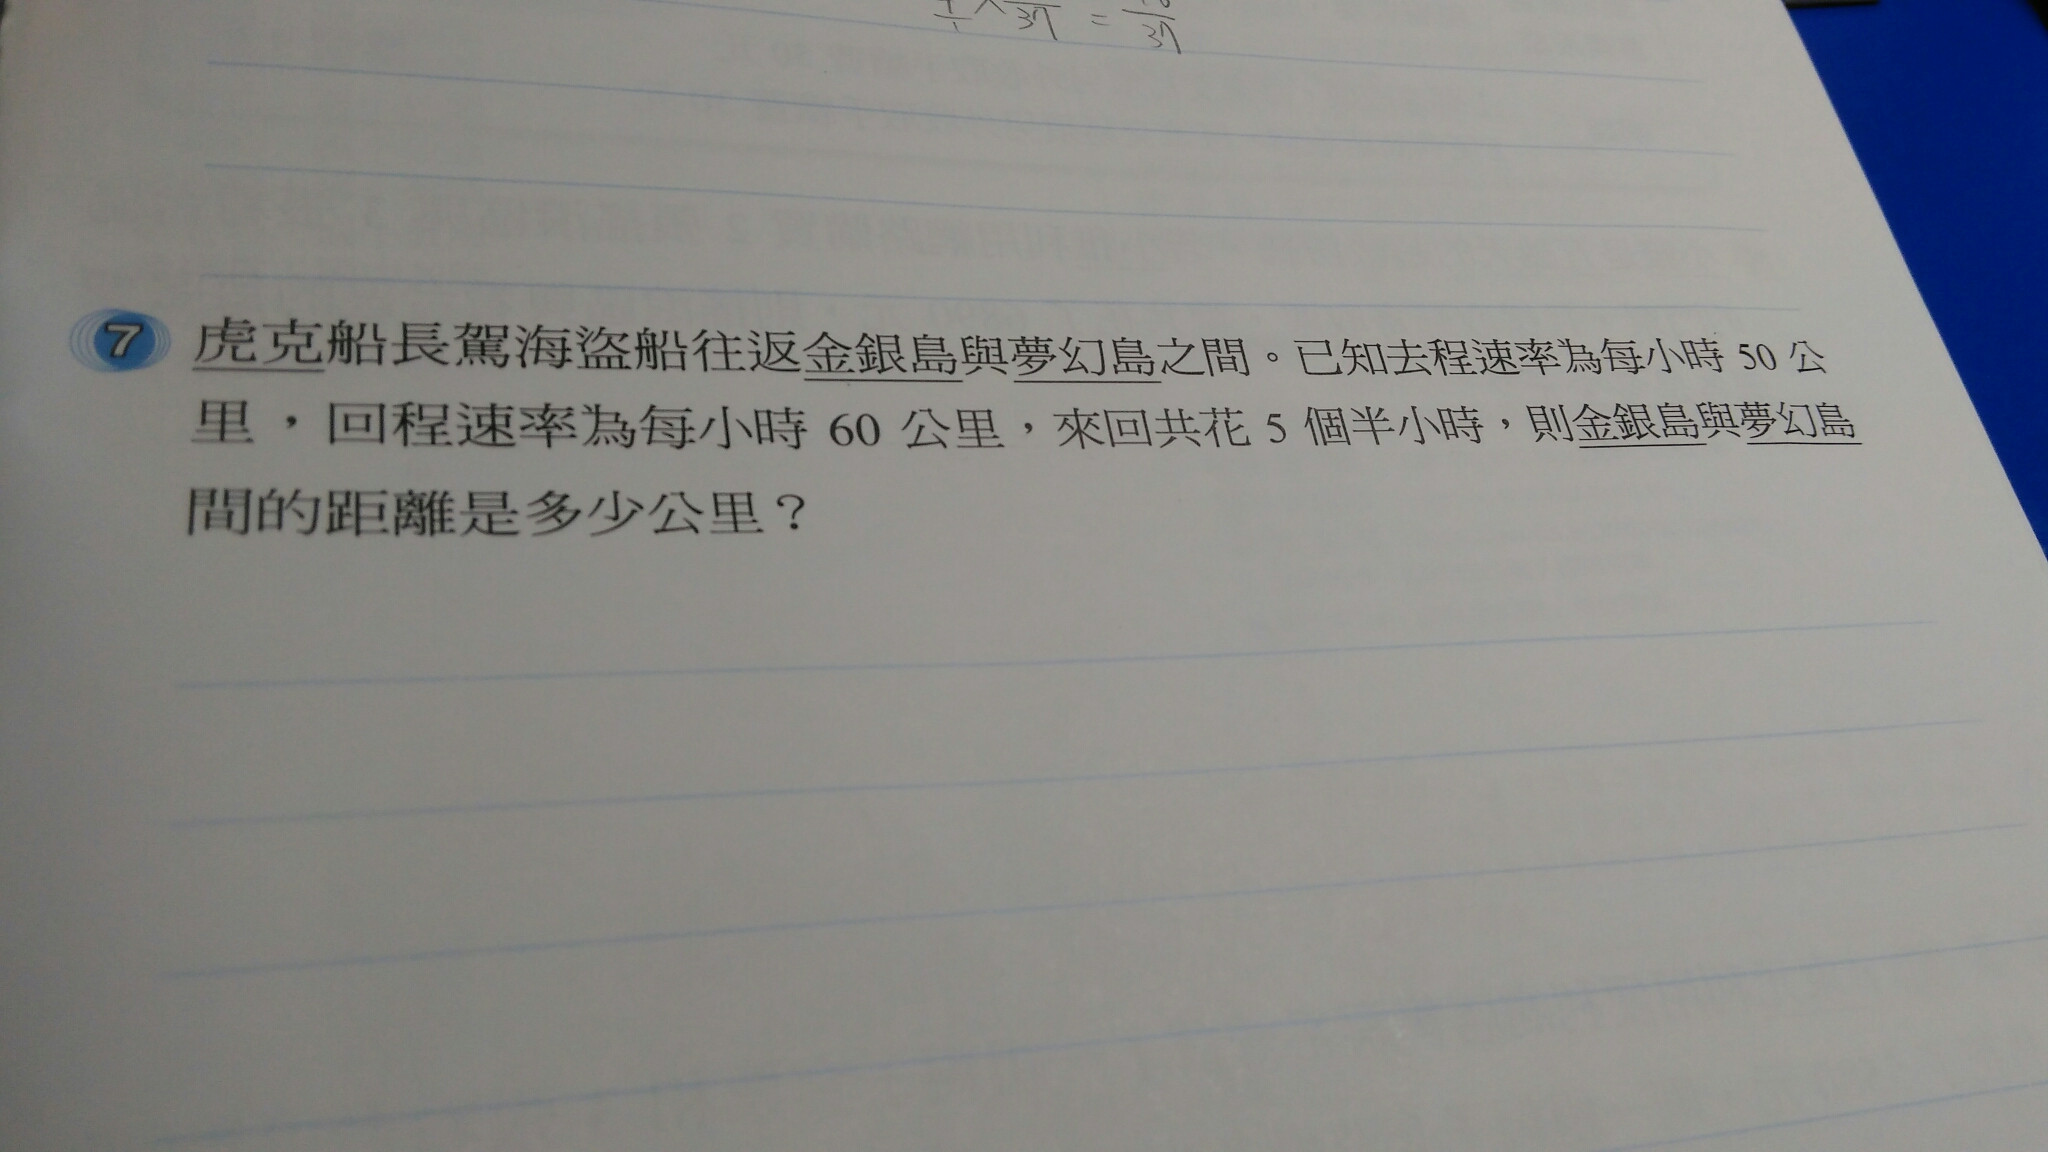 37 = 37
7 虎克船長駕海盜船往返金銀島與夢幻島之間。已知去程速率為每小時 50 公
里，回程速率為每小時 60 公里，來回共花 5 個半小時，則金銀島與夢幻島
間的距離是多少公里？